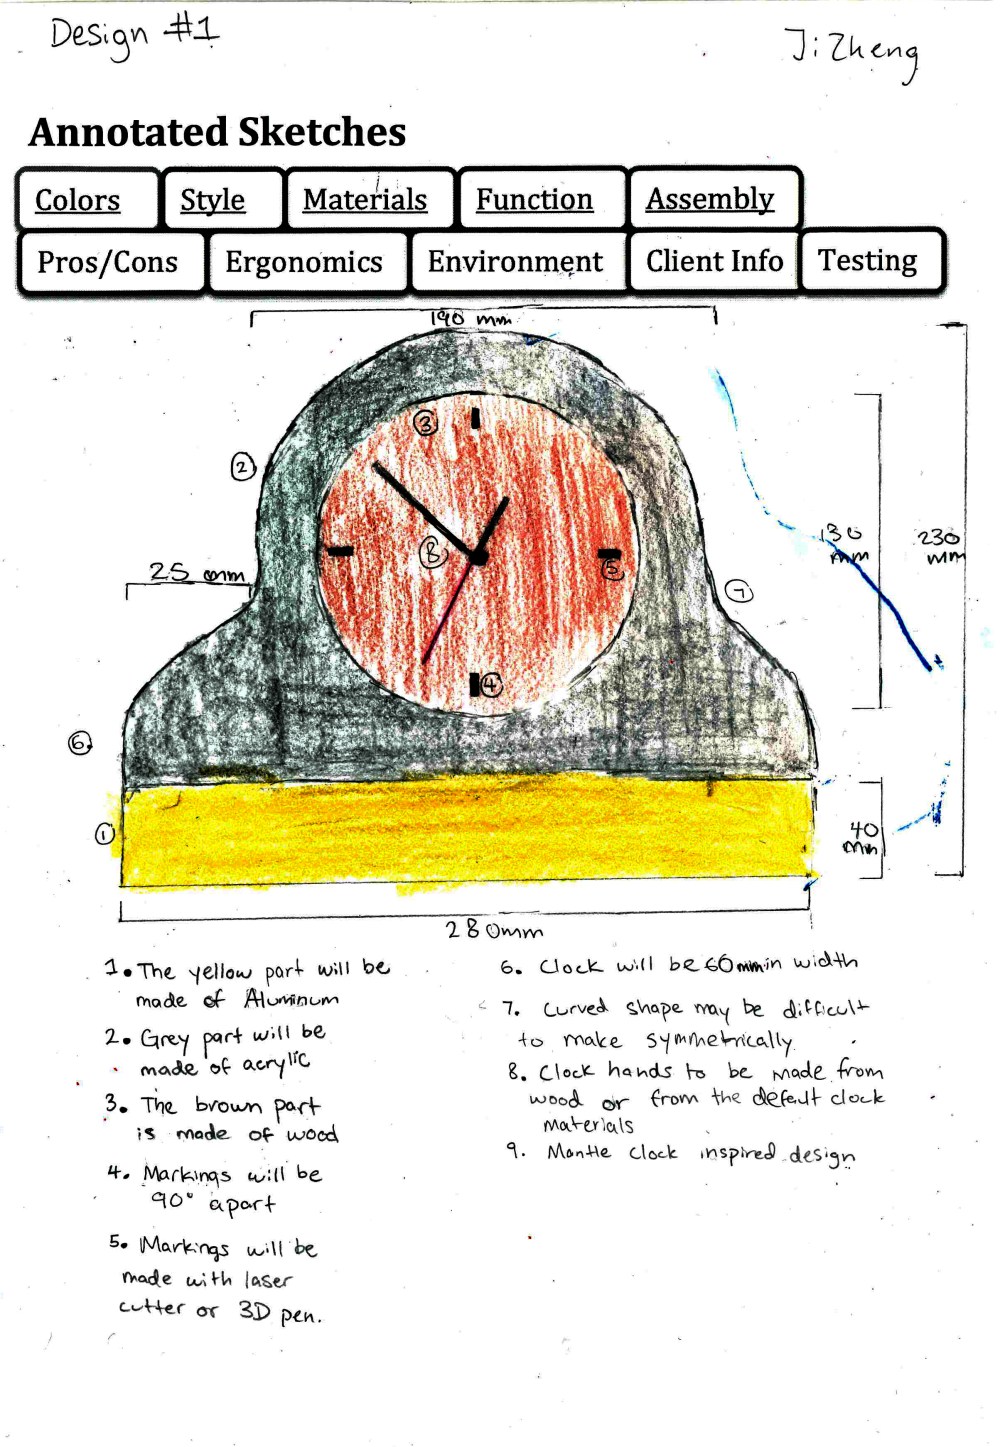 Design #1
Ji Zheng
Annotated Sketches
Colors Style Materials Function Assembly
Pros/Cons Ergonomics Environment Client Info Testing
190 mm
3
2
130 mm
230 mm
8
5
25 mm
7
4
6.
1
40 mm
280mm
1. The yellow part will be
made of Aluminum
2. Grey part will be
made of acrylic
3. The brown part
is made of wood
4. Markings will be
90° apart
5. Markings will be
made with laser
cutter or 3D pen.
6. Clock will be 60mm in width
7. Curved shape may be difficult
to make symmetrically.
8. Clock hands to be made from
wood or from the default clock
materials
9. Mantle clock inspired design